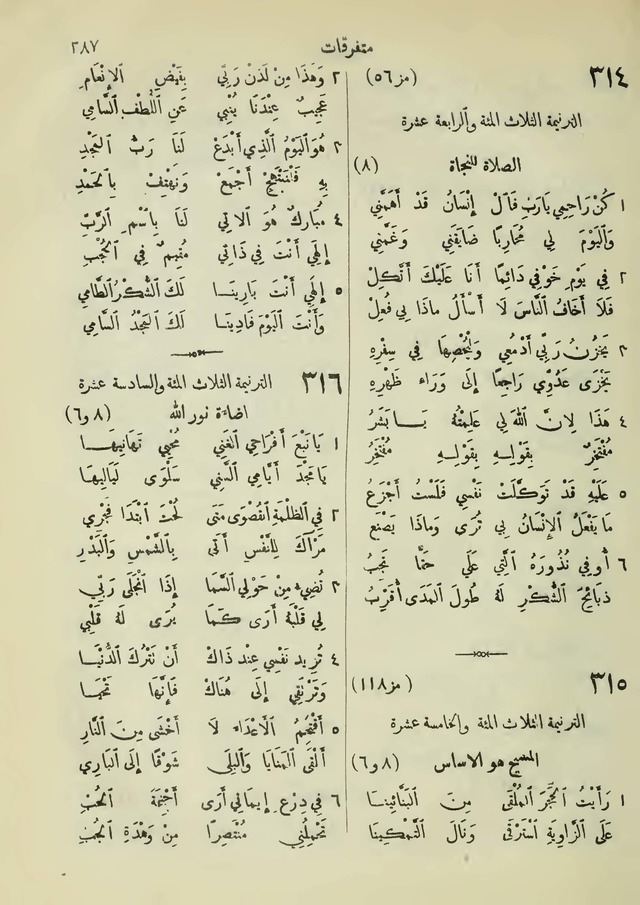 متفرقات ٢٨٧
٣١٤ (مز ٥٦)
الترنيمة الثلاث المئة والرابعة عشرة
الصلاة للنجاة (٨)
١ كُنْ رَاحِمِي يَارَبِّ قَالَ إِنْسَانُ قَدْ أَهَمَّنِي
وَٱلْيَوْمَ لِي مُحَارِبًا ضَايَقَنِي وَغَمَّنِي
٢ فِي يَوْمِ خَوْفِي دَائِمًا أَنَا عَلَيْكَ أَتَّكِلْ
فَلَا أَخَافُ ٱلنَّاسَ لَا أَسْأَلُ مَاذَا بِي فُعِلْ
٣ يَخْزُنُ رَبِّي أَدْمُعِي وَيُحْصِهَا فِي سِفْرِهِ
يَخْزَى عَدُوِّي رَاجِعًا إِلَى وَرَاءَ ظَهْرِهِ
٤ هَذَا لِأَنَّ ٱللهَ لِي عَلِمْتُهُ يَا بَشَرُ
مُفْتَخِرٌ بِقَوْلِهِ بِقَوْلِهِ مُفْتَخِرُ
٥ عَلَيْهِ قَدْ تَوَكَّلَتْ نَفْسِي فَلَسْتُ أَجْزَعُ
مَا يَفْعَلُ ٱلْإِنْسَانُ بِي تُرَى وَمَاذَا يَصْنَعُ
٦ أُوفِي نُذُورَهُ ٱلَّتِي عَلَيَّ حَتْمًا تَجِبُ
ذَبَائِحَ ٱلشُّكْرِ لَهُ طُولَ ٱلْمَدَى أُقَرِّبُ
٣١٥ (مز ١١٨)
الترنيمة الثلاث المئة والخامسة عشرة
المسيح هو الاساس (٨ و٦)
١ رَأَيْتُ ٱلْحَجَرَ ٱلْمُلْقَى مِنَ ٱلْبَنَّائِينَا
عَلَى ٱلزَّاوِيَةِ ٱسْتَرْقَى وَنَالَ ٱلتَّمْكِينَا
٢ وَهَذَا مِنْ لَدُنْ رَبِّي بِفَيْضِ ٱلْإِنْعَامِ
عَجِيبٌ عِنْدَنَا يُنْبِي عَنِ ٱللُّطْفِ ٱلسَّامِي
٣ هُوَ ٱلْيَوْمُ ٱلَّذِي أَبْدَعْ لَنَا رَبُّ ٱلْمَجْدِ
بِهِ فَلْنَبْتَهِجْ أَجْمَعْ وَنَهْتِفْ بِٱلْحَمْدِ
٤ مُبَارَكٌ هُوَ ٱلْآتِي لَنَا بِٱسْمِ ٱلرَّبِّ
إِلَهِي أَنْتَ فِي ذَاتِي مُقِيمٌ فِي ٱلْحُبِّ
٥ إِلَهِي أَنْتَ بَارِينَا لَكَ ٱلشُّكْرُ ٱلطَّامِي
وَأَنْتَ ٱلْيَوْمَ فَادِينَا لَكَ ٱلْمَجْدُ ٱلسَّامِي
٣١٦ الترنيمة الثلاث المئة والسادسة عشرة
اضاءة نور الله (٨ و٦)
١ يَا نَبْعَ أَفْرَاحِي ٱلْغَنِي مُحْيِي تَهَانِيهَا
يَا مَجْدَ أَيَّامِي ٱلسَّنِي سَلْوَى لَيَالِيهَا
٢ فِي ٱلظُّلْمَةِ ٱلْقُصْوَى مَتَى لُحْتَ ٱبْتَدَا فَجْرِي
مَرْآكَ لِلنَّفْسِ أَتَى بِٱلشَّمْسِ وَٱلْبَدْرِ
٣ تُضِيءُ مِنْ حَوْلِي ٱلسَّمَا إِذَا ٱنْجَلَى رَبِّي
لِي قَلْبَهُ أَرَى كَمَا يُرَى لَهُ قَلْبِي
٤ تُرِيدُ نَفْسِي عِنْدَ ذَاكْ أَنْ تَتْرُكَ ٱلدُّنْيَا
وَتَرْتَقِي إِلَى هُنَاكْ فَإِنَّهَا تَحْيَا
٥ أَقْتَحِمُ ٱلْأَعْدَاءَ لَا أَخْشَى مِنَ ٱلنَّارِ
أَلْقَى ٱلْمَنَايَا وَٱلْبَلَى شَوْقًا إِلَى ٱلْبَارِي
٦ فِي دِرْعِ إِيمَانِي أَرَى أَجْنِحَةَ ٱلْحُبِّ
تَحْمِلُنِي مُنْتَصِرًا مِنْ وَهْدَةِ ٱلْجُبِّ